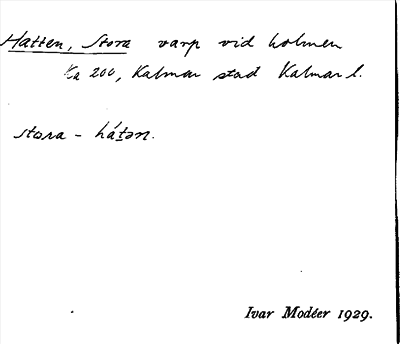 Hatten, Stora varp vid holmen
Ka 200, Kalmar stad Kalmar l.
stora - hátən.
Ivar Modéer 1929.